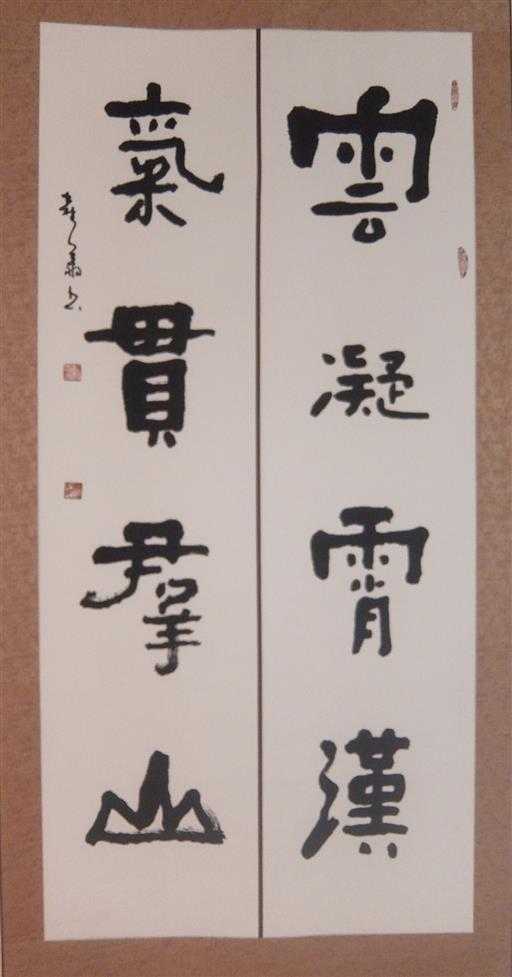 雲凝霄漢
氣貫羣山